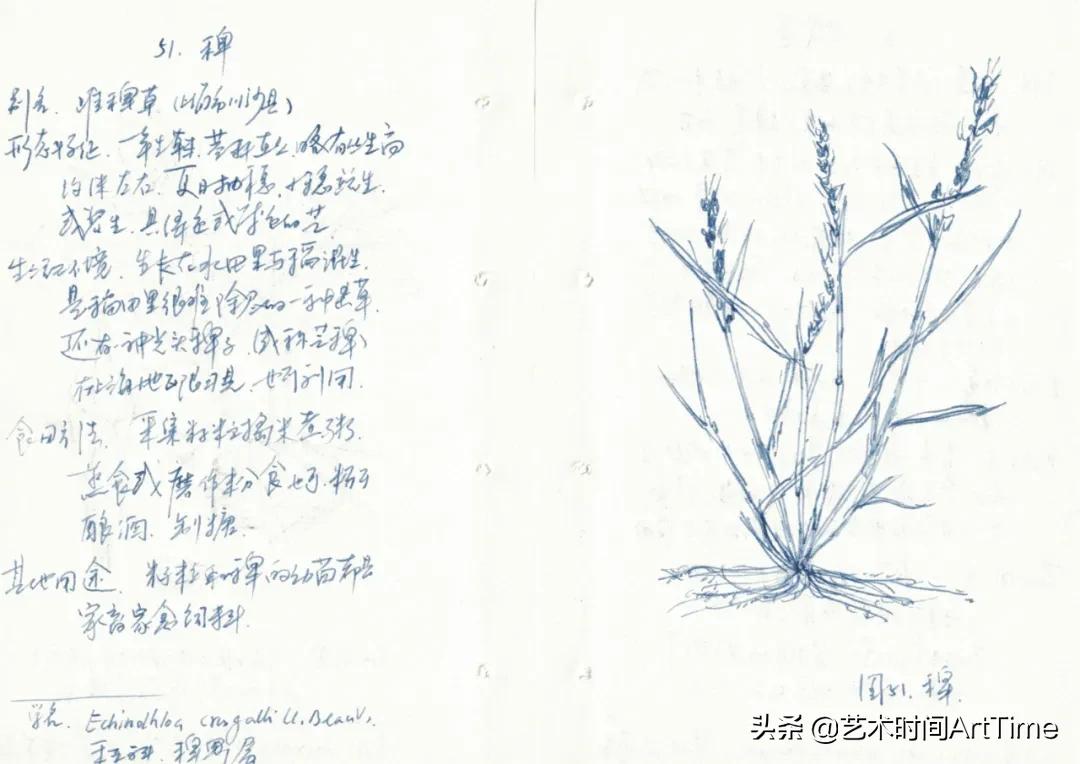 51. 稗
别名. 堆稗草 (四川沙县)
形态特征. 一年生草本. 茎秆直立. 略有丛生高
约1米左右. 夏日抽穗. 小穗
或紫色的芒
生活环境. 生长在水田里与稻混生.
是稻田里很难除尽的一种恶草.
还有一种光头稗子 (或称芒稗)
在海地区很习见. 也可利用.
食用方法. 采集籽粒捣米煮粥.
蒸食或磨作粉食也可. 籽可
酿酒. 制糖.
其他用途. 籽粒和稗的幼苗都是
家畜家禽饲料.
学名. Echinochloa crusgalli (L.) Beauv.
禾本科. 稗属
图51. 稗.
头条 @艺术时间ArtTime